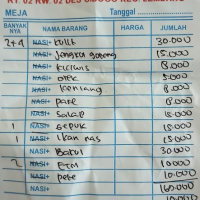 MEJA Tanggal
BANYAK NYA NAMA BARANG HARGA JUMLAH
2+4 NASI+ kulit 30.000
NASI+ Jengkol goreng 15.000
NASI+ 8.000
NASI+ orek 5.000
NASI+ kentang 8.000
NASI+ pare 8.000
NASI+ 15.000
1 NASI+ cepuk 15.000
1 NASI+ ikan nas 15.000
NASI+ Botol 30.000
2 NASI+ ETM 10.000
NASI+ pete 10.000
NASI+ 160.000